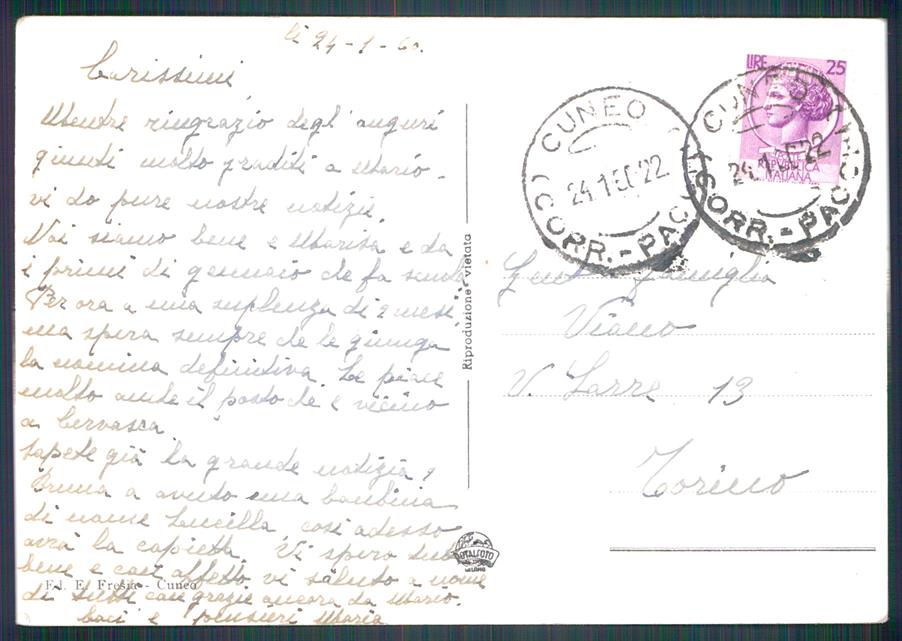 li 24-1-60.
Carissimi
Mentre ringrazio degl'auguri
giunti molto graditi a Mario.
vi do pure nostre notizie.
Noi siamo bene e Marisa e da
i primi di gennaio che fa scuola
Per ora a una suplenza di 2 mesi
ma spera sempre che le giunga
la nomina definitiva. Le piace
molto anche il posto che e vicino
a Cervasca.
Sapete già la grande notizia,
Bruna a avuto una bambina
di nome Lucilla, così adesso
avrà la copietta. Vi spero
bene e con affetto vi saluto a nome
di tutti con grazie ancora da Mario.
baci e pensieri Maria
F.l. E. Fresia - Cuneo
Riproduzione vietata
ROTALFOTO
MILANO
LIRE 25
REPVBBLICA
ITALIANA
CUNEO
24.1.60.22
(CORR.-PACCHI)
CUNEO
24.1.60.22
(CORR.-PACCHI)
Famiglia
Viano
V. 13
Torino